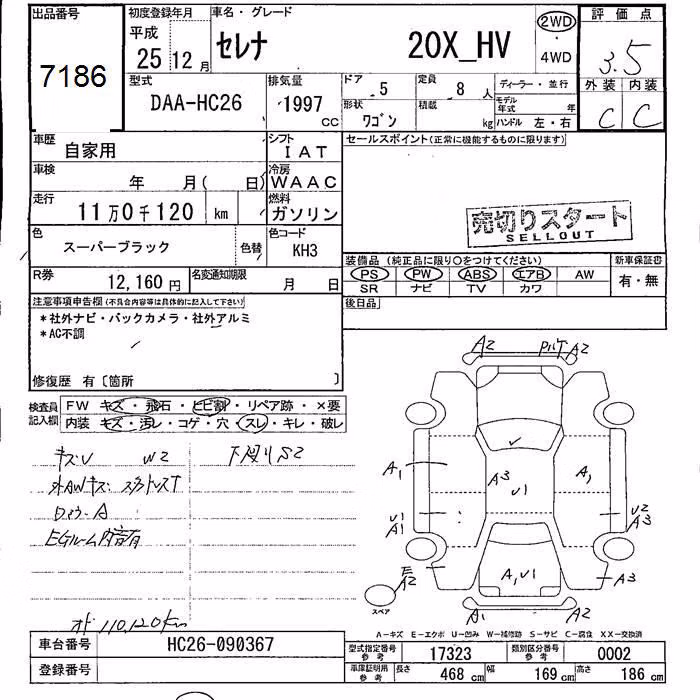 出品番号
初度登録年月
車名・グレード
7186
平成
25 12 月
セレナ
20X_HV
2WD
4WD
評価点
3.5
外装 内装
C C
型式
DAA-HC26
排気量
1997
CC
ドア
5
定員
8 人
ディーラー・並行
形状
ワゴン
積載
kg
モデル年式
年
ハンドル 左・右
車歴
自家用
シフト
IAT
セールスポイント(正常に機能するものに限ります)
車検
年 月( 日)
冷房
WAAC
走行
11万0千120 km
燃料
ガソリン
売切りスタート
SELLOUT
色
スーパーブラック
色替
色コード
KH3
装備品(純正品に限り○をつけてください)
新車保証書
PS PW ABS エアB AW
有・無
SR ナビ TV カワ
R券
12,160 円
名変通知期限
月 日
後日品
注意事項申告欄(不具合内容等は具体的に記入して下さい)
*社外ナビ・バックカメラ・社外アルミ
*AC不調
修復歴 有〔箇所 〕
検査員記入欄
FW キズ・飛石・ヒビ割・リペア跡・×要
内装 キズ・汚レ・コゲ・穴・スレ・キレ・破レ
キズU W2
下廻りS2
外AWキズ
EGルーム内
オド 110,120km
A2
A2
A1
A3
U1
A1
U1
A1
U2
A3
E
A2
A,U1
A3
スペア
A1
A2
A-キズ E-エクボ U-凹み W-補修跡 S-サビ C-腐食 XX-交換済
車台番号
HC26-090367
登録番号
型式指定番号参考
17323
類別区分番号参考
0002
車庫証明用参考
長さ
468 cm
幅
169 cm
高さ
186 cm